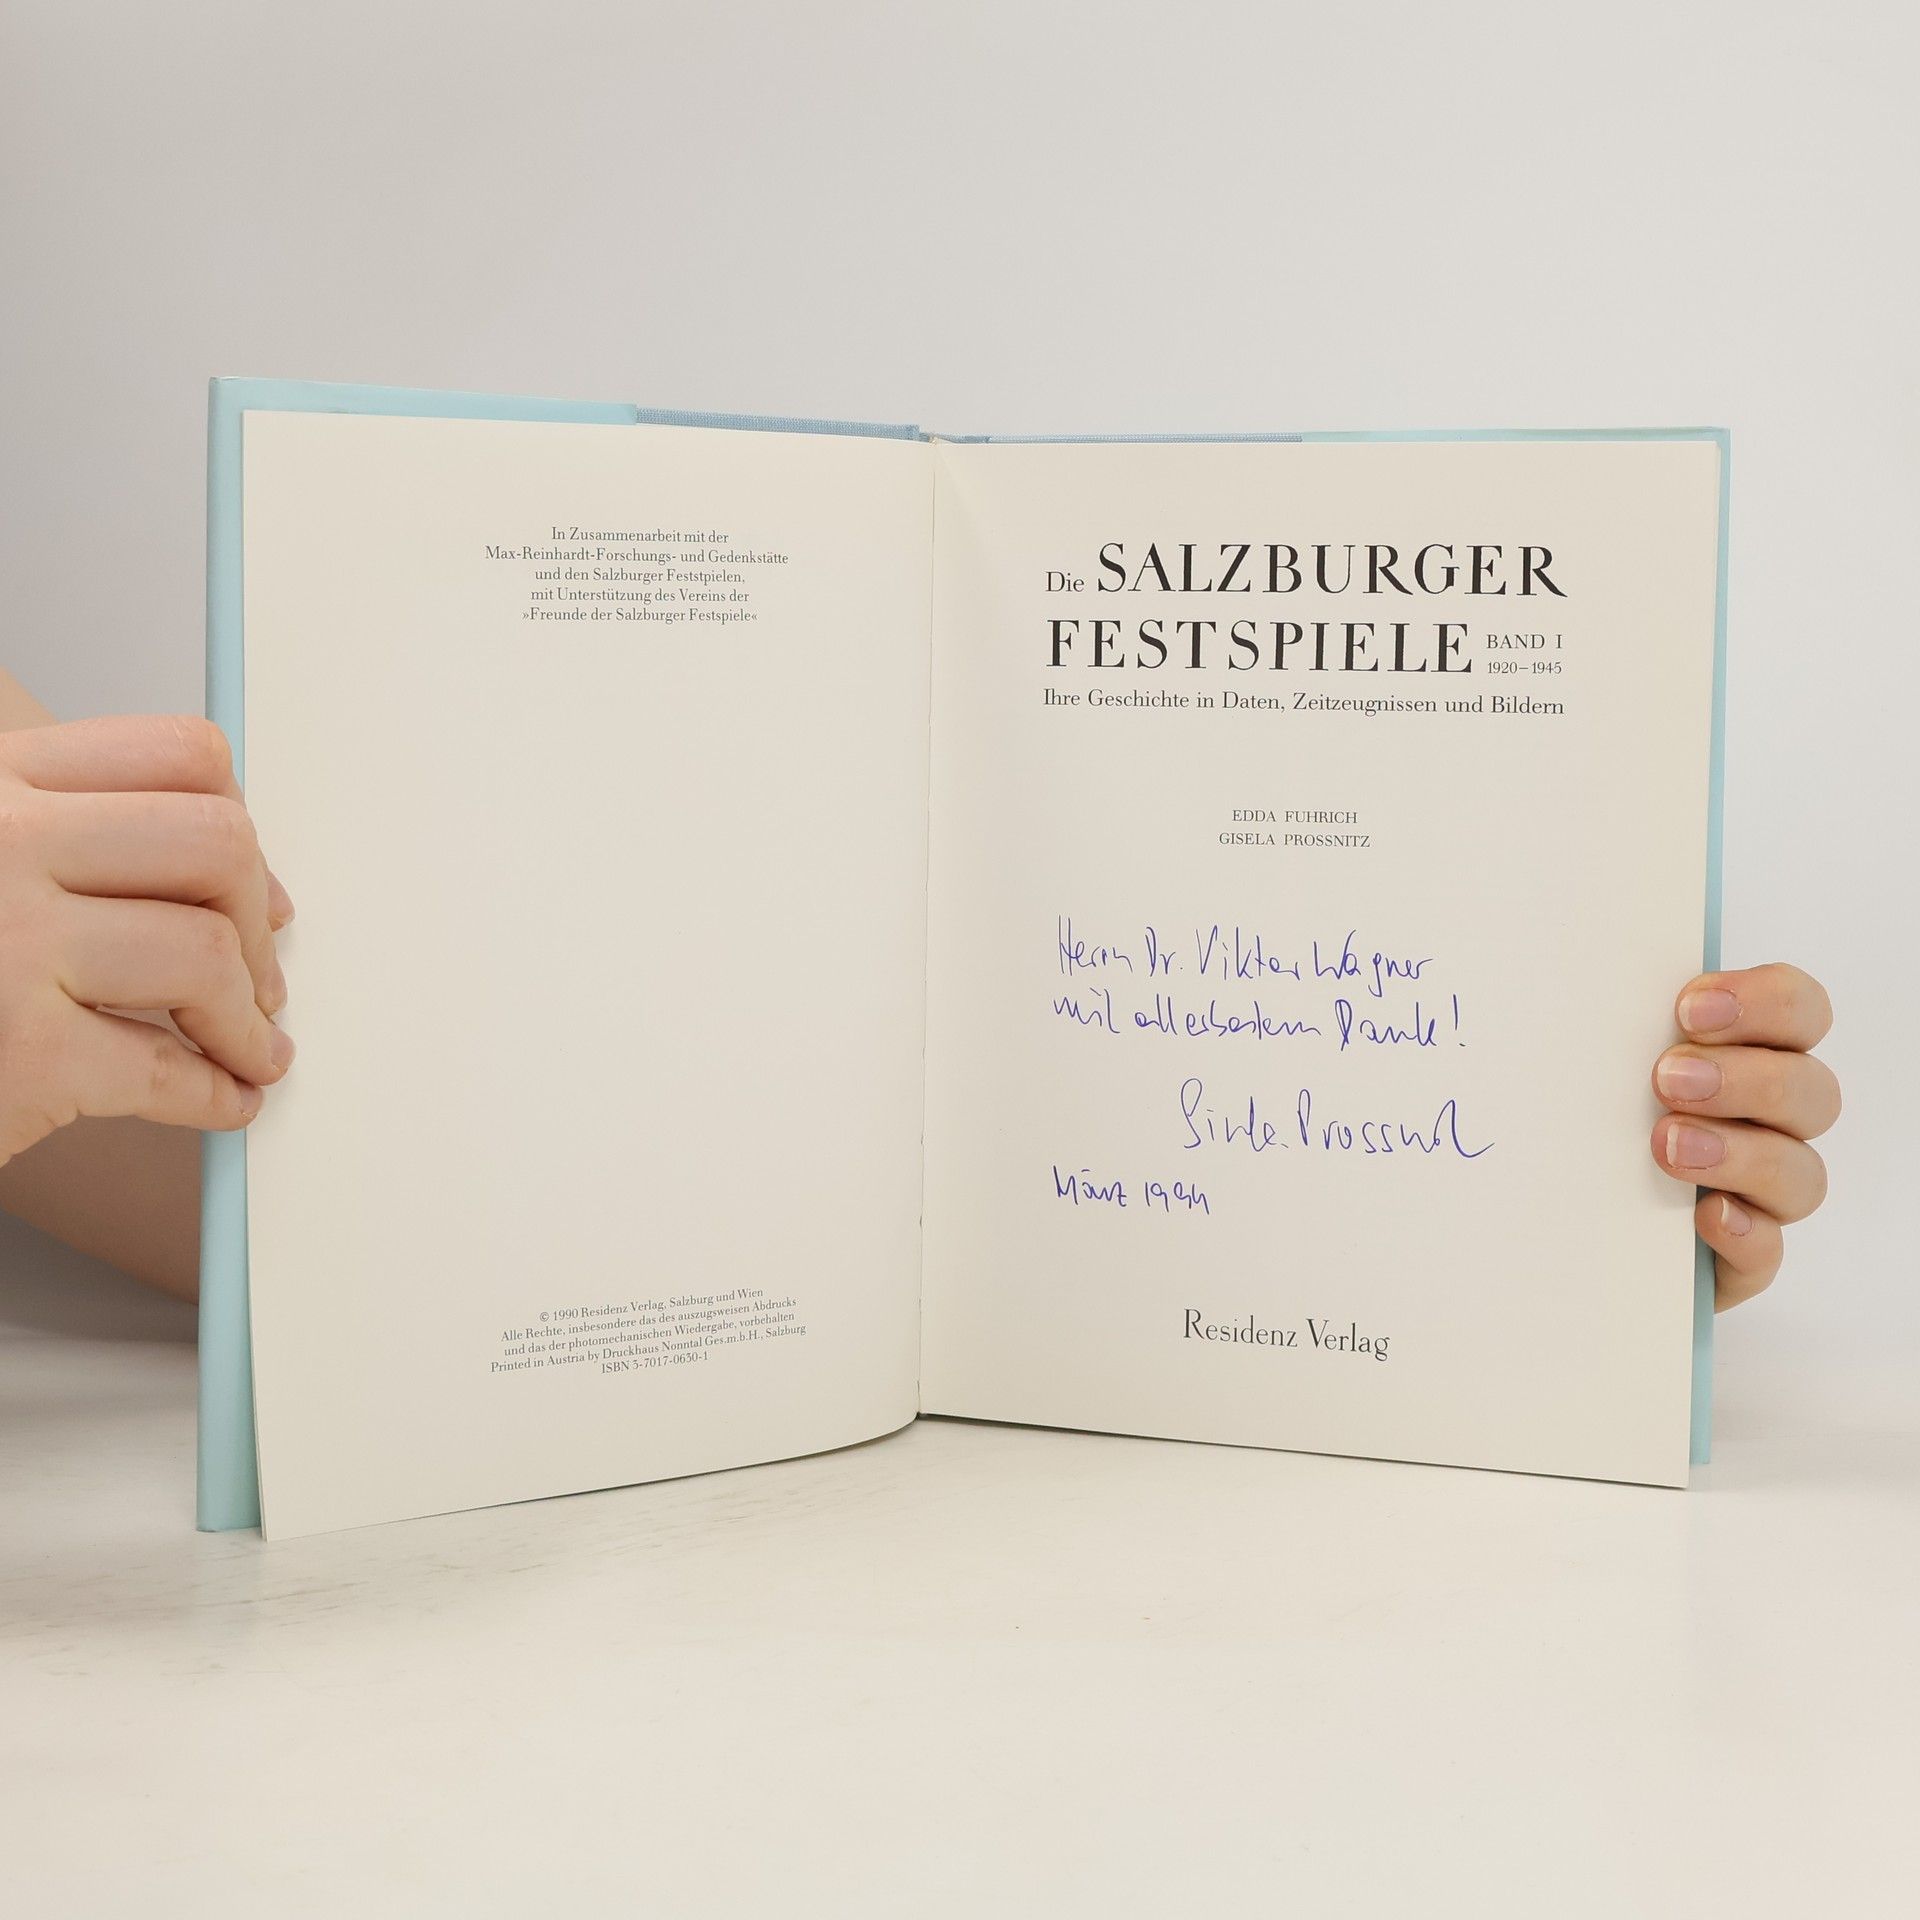 In Zusammenarbeit mit der
Max-Reinhardt-Forschungs- und Gedenkstätte
und den Salzburger Feststpielen,
mit Unterstützung des Vereins der
»Freunde der Salzburger Festspiele«
© 1990 Residenz Verlag, Salzburg und Wien
Alle Rechte, insbesondere das des auszugsweisen Abdrucks
und das der photomechanischen Wiedergabe, vorbehalten
Printed in Austria by Druckhaus Nonntal Ges.m.b.H., Salzburg
ISBN 3-7017-0630-1
Die SALZBURGER
FESTSPIELE BAND I
1920–1945
Ihre Geschichte in Daten, Zeitzeugnissen und Bildern
EDDA FUHRICH
GISELA PROSSNITZ
Herrn Dr. Viktor Wagner
mit allerbestem Dank!
Prossnitz
März 1994
Residenz Verlag